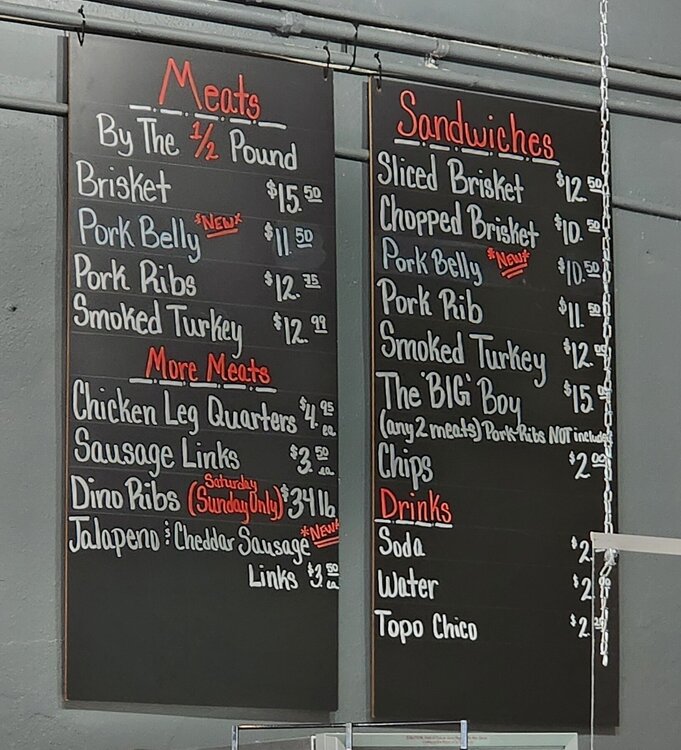 Meats
By The 1/2 Pound
Brisket $15.50
Pork Belly *NEW* $11.50
Pork Ribs $12.75
Smoked Turkey $12.99
More Meats
Chicken Leg Quarters $4.95 ea
Sausage Links $3.50 ea
Saturday
Dino Ribs (Sunday Only) $34 lb
Jalapeno & Cheddar Sausage *NEW*
Links $3.50 ea
Sandwiches
Sliced Brisket $12.50
Chopped Brisket $10.50
Pork Belly *NEW* $10.50
Pork Rib $11.50
Smoked Turkey $12.
The "BIG" Boy $15.
(any 2 meats) Pork Ribs NOT include
Chips $2.00
Drinks
Soda $2.
Water $2.
Topo Chico $2.